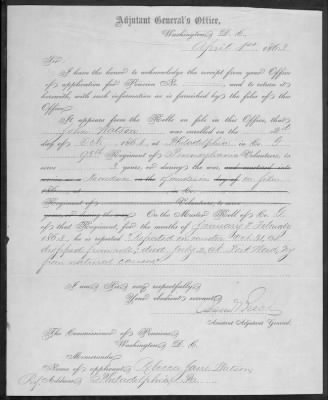 Adjutant General's Office,
Washington, D. C.
April 1st 1863
Sir:
I have the honor to acknowledge the receipt from your Office
of application for Pension No. and to return it
herewith, with such information as is furnished by the files of this
Office.
It appears from the Rolls on file in this Office, that
John Watson was enrolled on the
day of Oct. 1861, at Philadelphia in Co. G
Regiment of Pennsylvania Volunteers, to
serve 3 years, or during the war, and mustered into
service as a day of on file
186 , at
Regiment of Volunteers, to serve
On the Muster Roll of Co. G
of that Regiment, for the months of January & February
186 , he is reported
died July 2, at
from natural causes
I am, Sir, very respectfully,
Your obedient servant,
Assistant Adjutant General.
The Commissioner of Pensions,
Washington, D. C.
Memoranda:
Name of applicant, Rebecca Jane Watson
Address, Philadelphia, Pa.